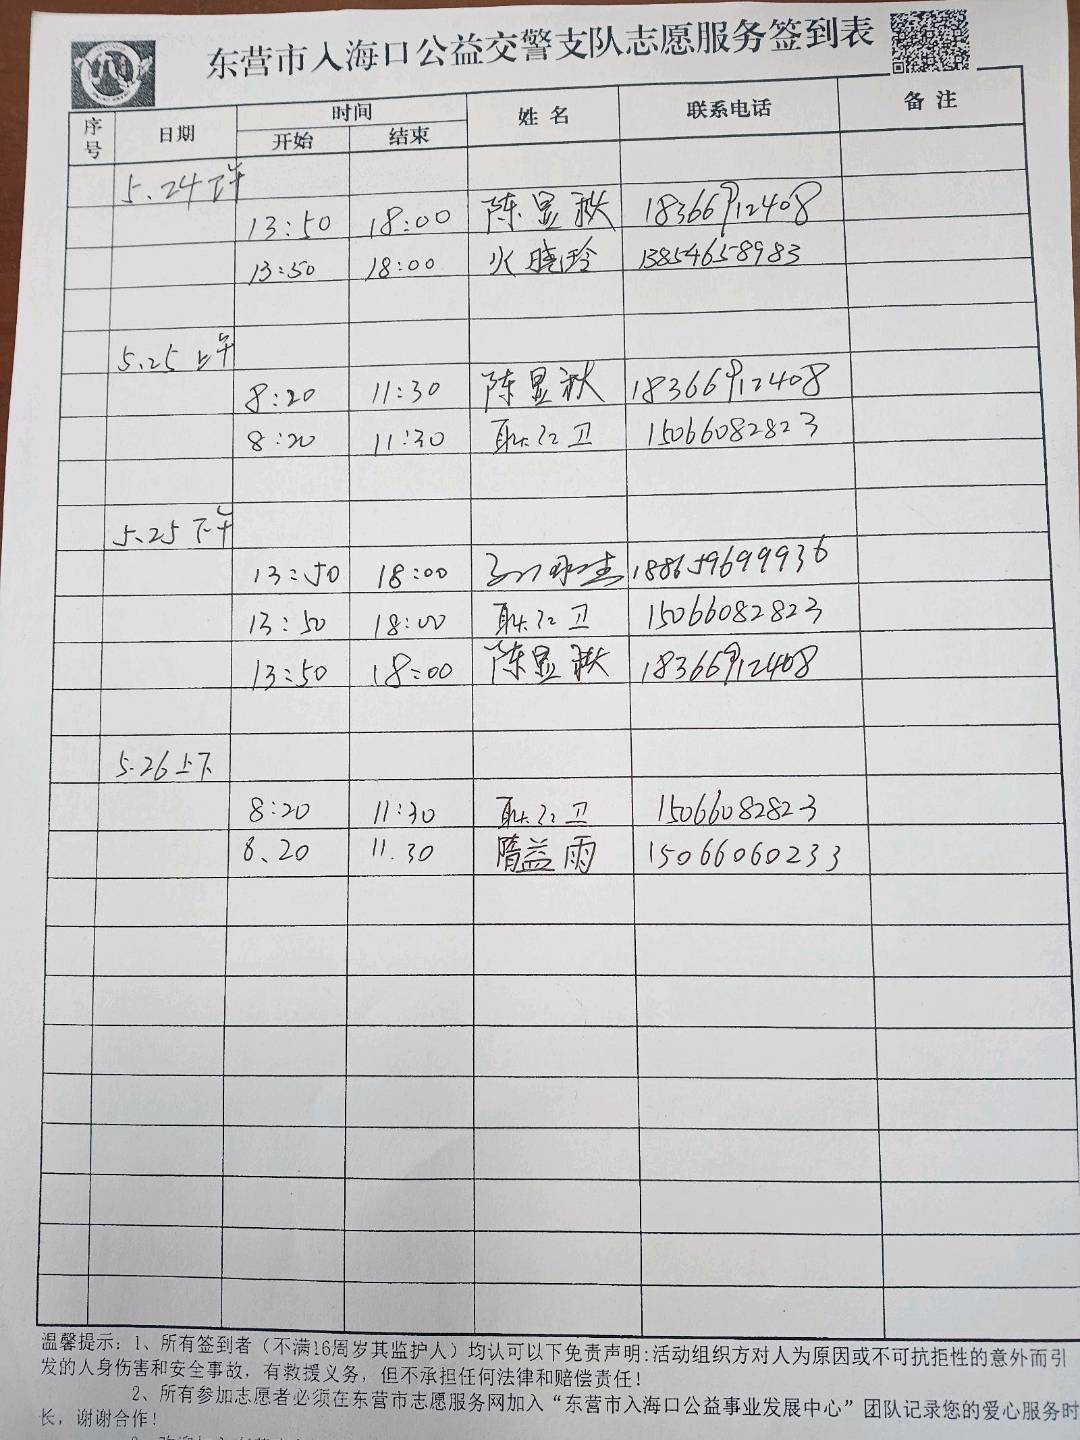 东营市入海口公益交警支队志愿服务签到表
序号 日期 时间 姓名 联系电话 备注
开始 结束
5.24下午
13:50 18:00 陈显秋 18366912408
13:50 18:00 火晓玲 13854658983
5.25上午
8:20 11:30 陈显秋 18366912408
8:20 11:30 耿江卫 15066082823
5.25下午
13:50 18:00
13:50 18:00 耿江卫 15066082823
13:50 18:00 陈显秋 18366912408
5.26上下
8:20 11:30 耿江卫 15066082823
8.20 11.30 隋益雨 15066060233
温馨提示：1、所有签到者（不满16周岁其监护人）均认可以下免责声明:活动组织方对人为原因或不可抗拒性的意外而引
发的人身伤害和安全事故，有救援义务，但不承担任何法律和赔偿责任！
2、所有参加志愿者必须在东营市志愿服务网加入“东营市入海口公益事业发展中心”团队记录您的爱心服务时
长，谢谢合作！